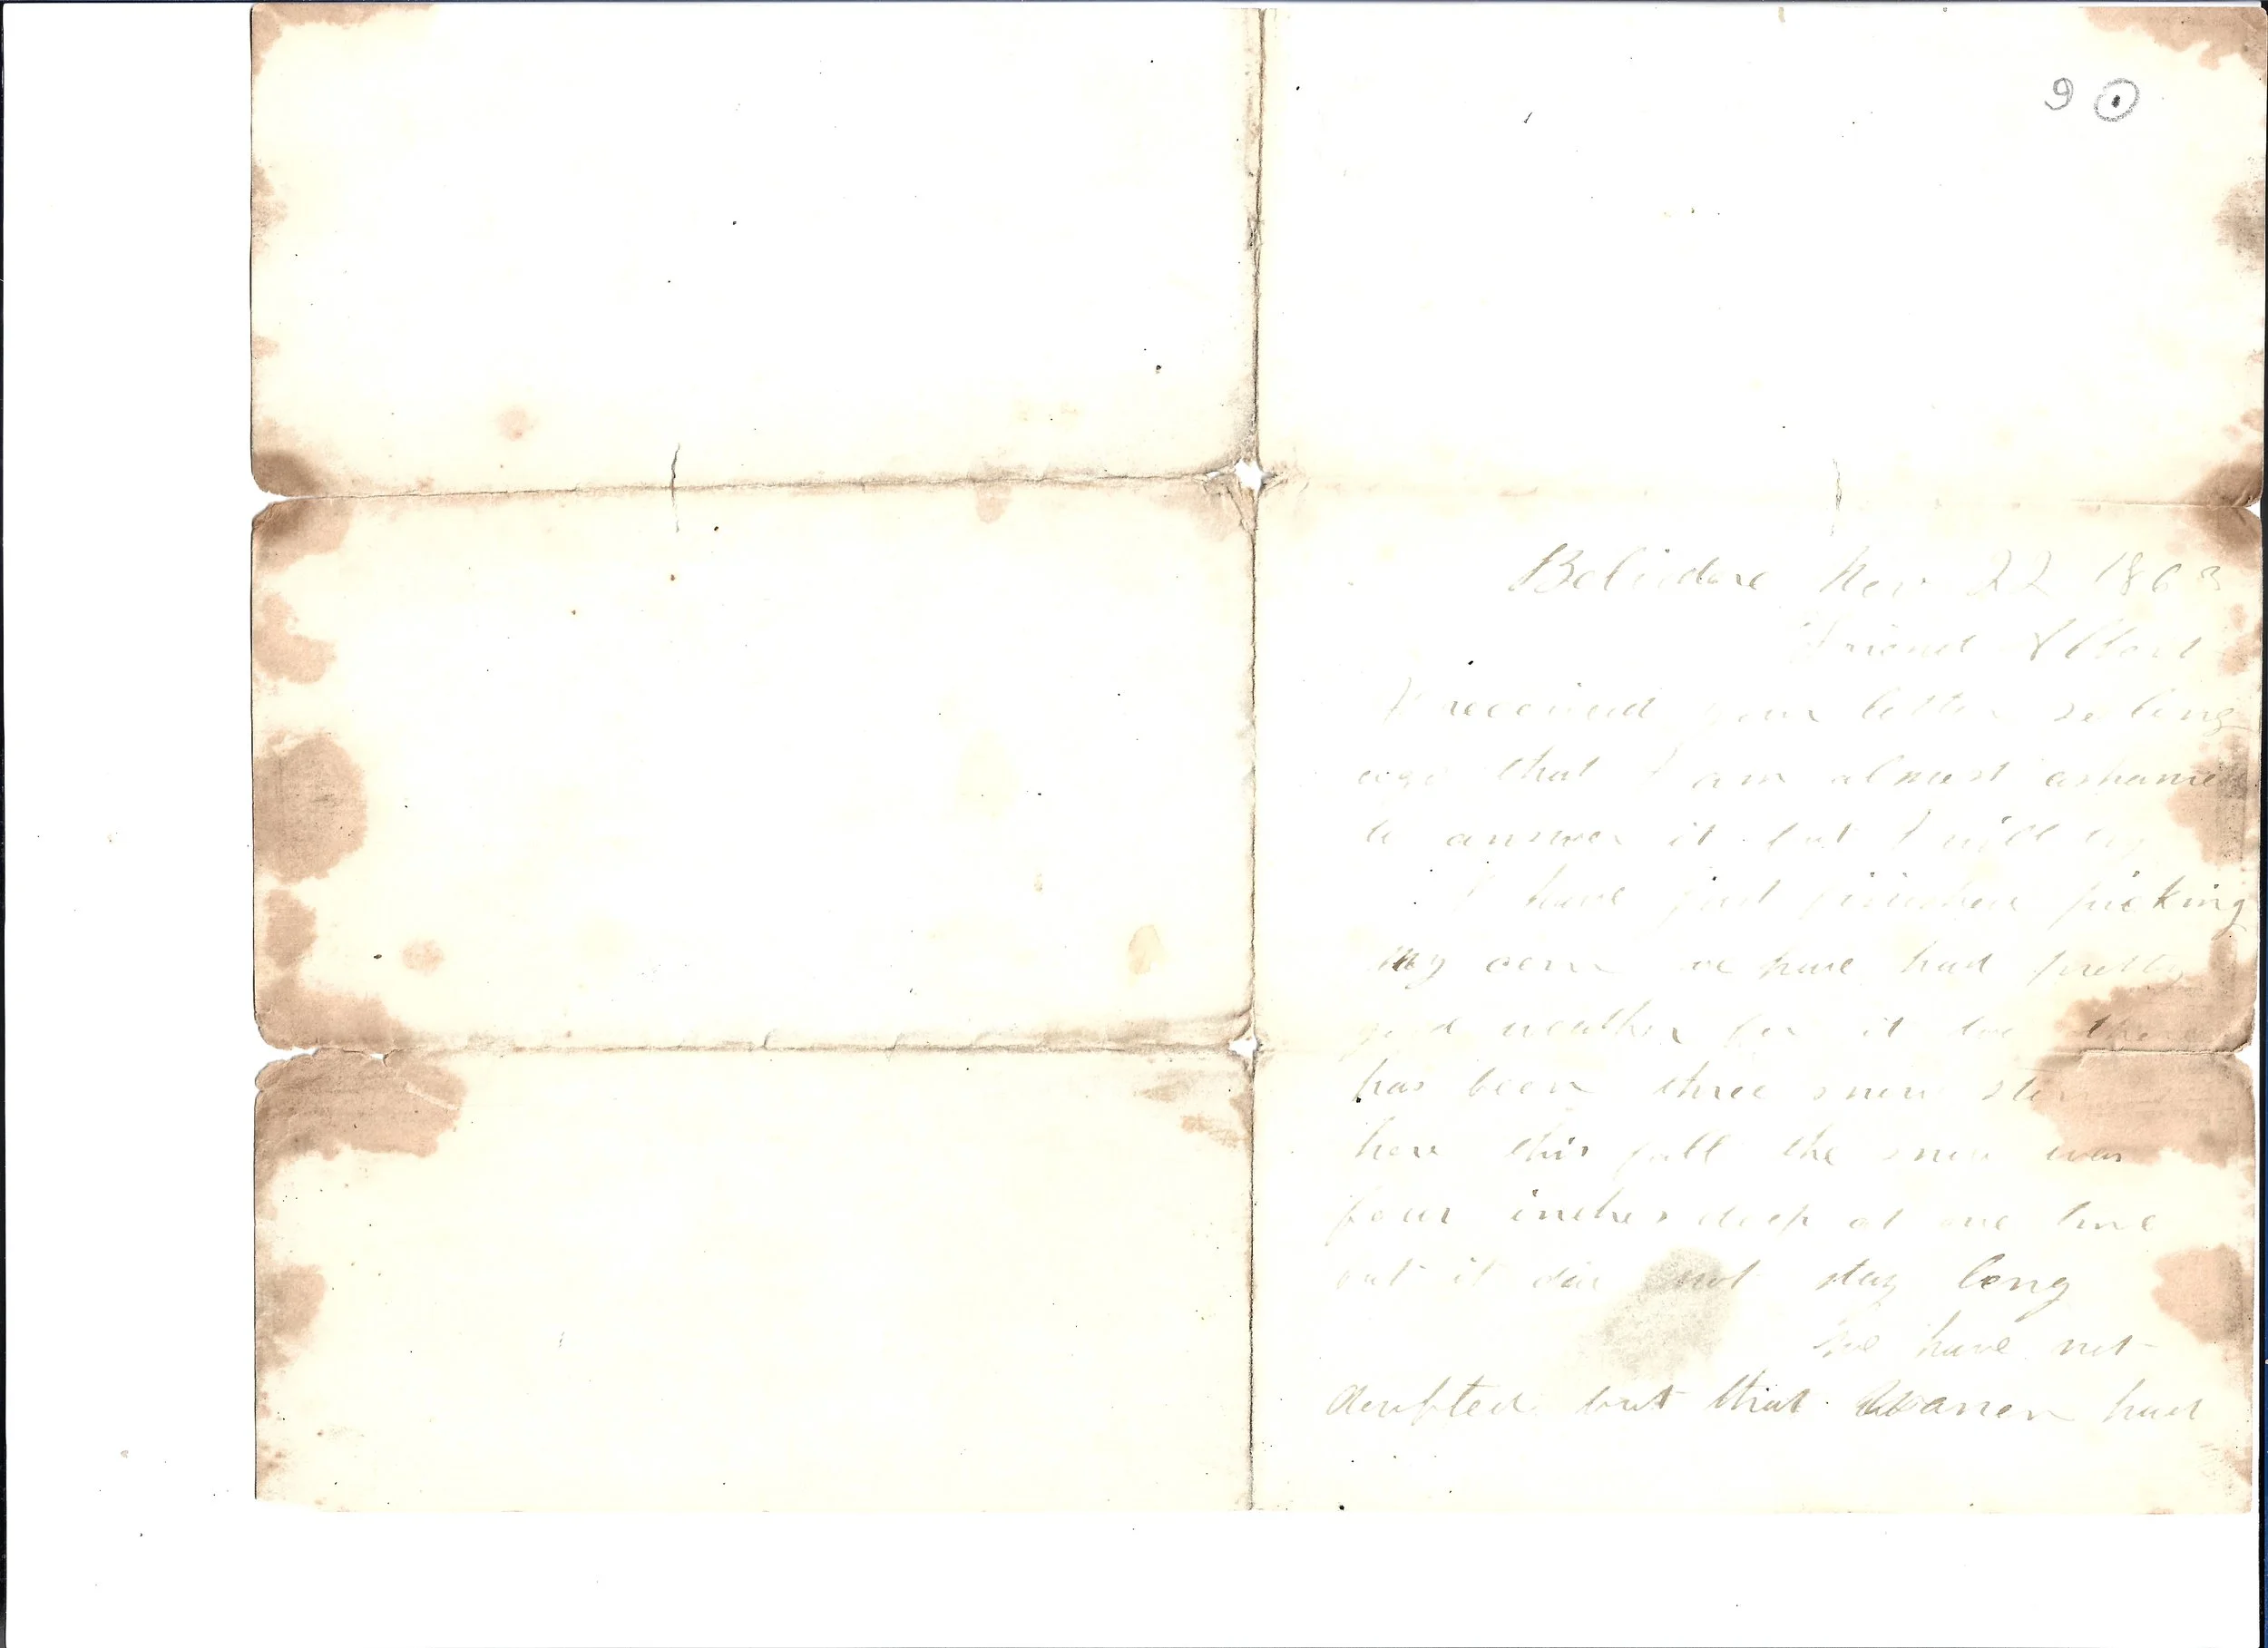 9 ①
Belvidere Nov 22 1863
Friend Albert
I received your letter so long
ago that I am almost ashamed
to answer it but I will try
I have just finished picking
my corn we have had pretty
good weather for it but the
has been three snow stor
here this fall the snow was
four inches deep at one time
but it did not stay long
We have not
doubted but that had